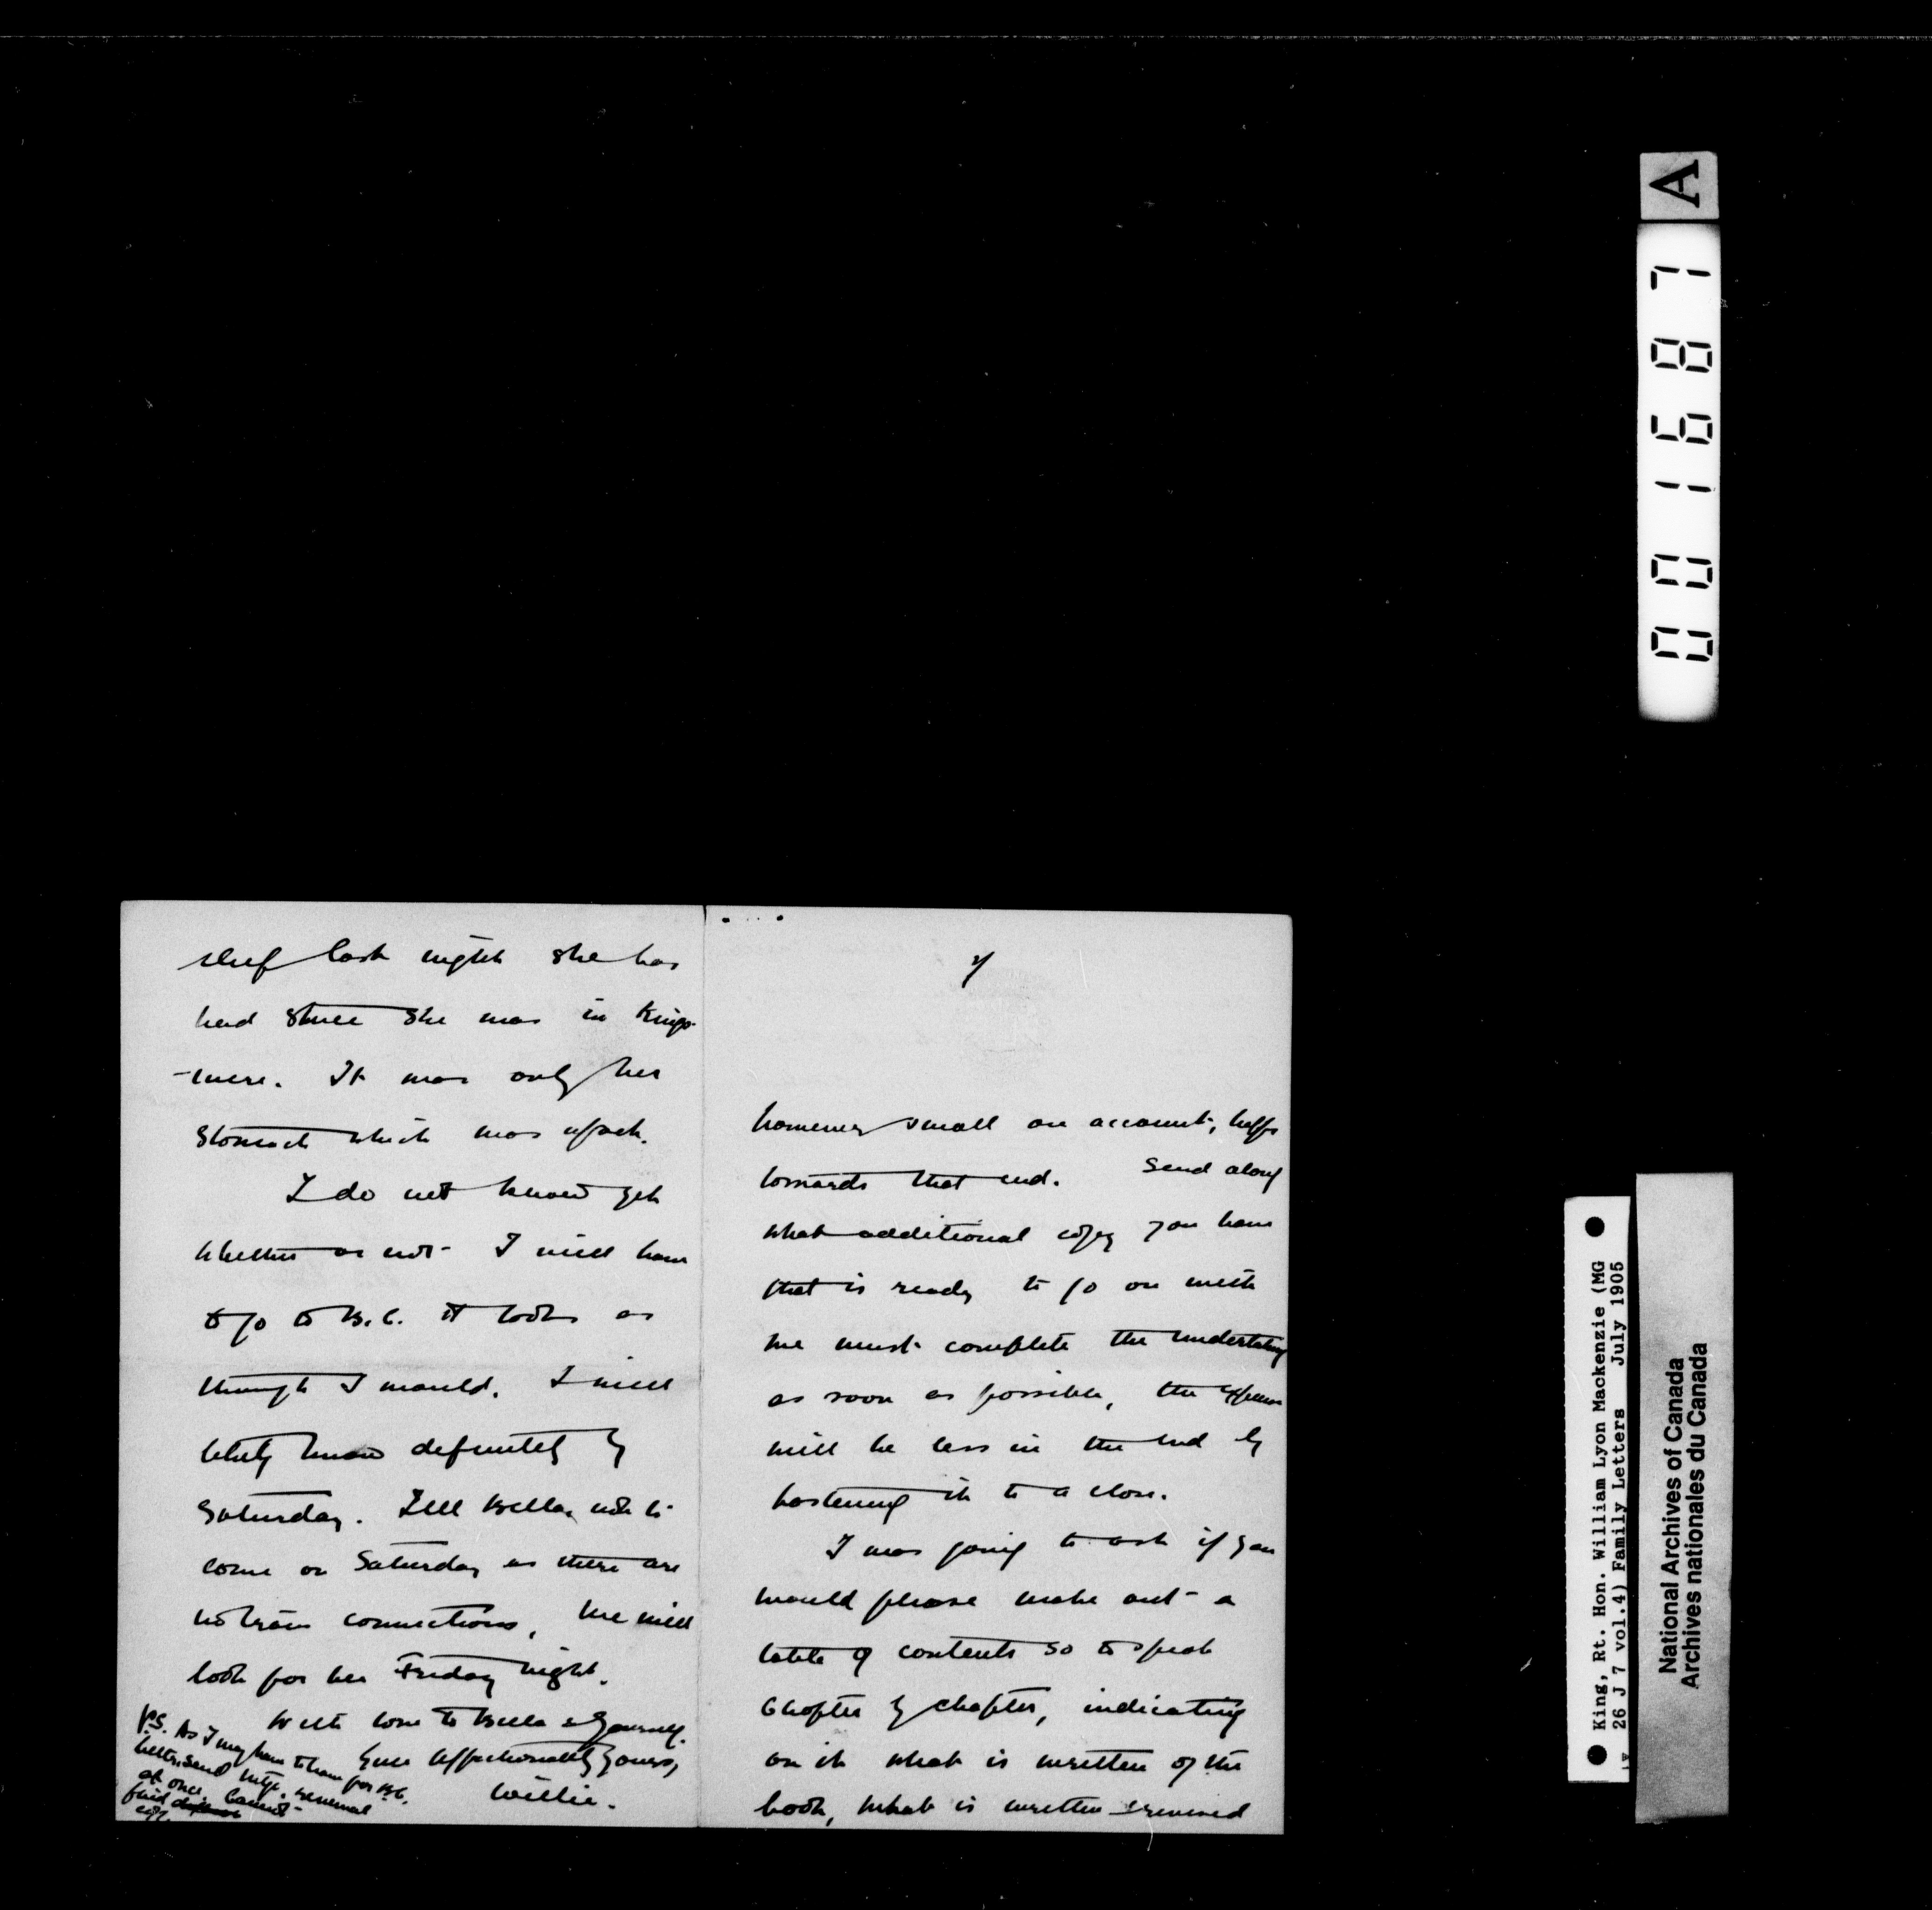 sleep last night she has
had since she was in Kings-
-mere. It was only her
stomach which was upset.
I do not know yet
whether or not I will have
to go to B.C. it looks as
though I would. I will
likely know definitely by
Saturday. Tell Bella not to
come on Saturday as there are
no train connections, we will
look for her Friday night.
With love to Bella & yourself.
Your affectionately yours,
Willie.
P.S. As I may have to leave for B.C.
better send mtge. renewal
at once. Cannot
find
copy.
2/
however small on account, helps
towards that end. Send along
what additional copy you have
that is ready to go on with
we must complete the undertaking
as soon as possible, the expense
will be less in the end by
hastening it to a close.
I was going to ask if you
would please make out a
table of contents so to speak
Chapter by chapter, indicating
on it what is written of the
book, what is written & revised
A
001687
King, Rt. Hon. William Lyon Mackenzie (MG
26 J 7 vol.4) Family Letters July 1905
National Archives of Canada
Archives nationales du Canada